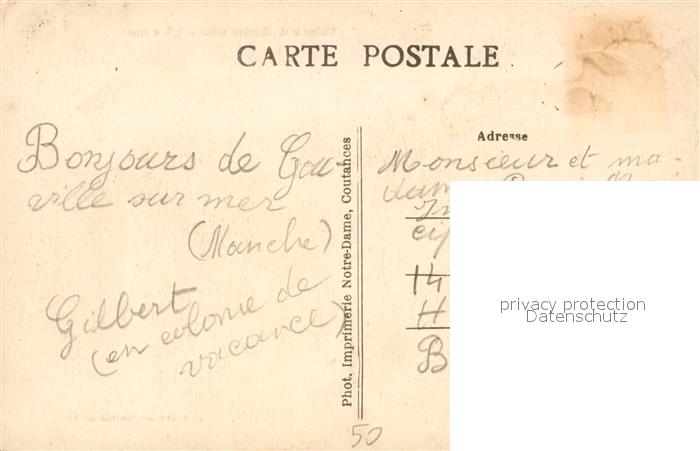 CARTE POSTALE
Bonjours de Gou-
ville sur mer
(Manche)
Gilbert
(en colonie de
vacance)
Phot. Imprimerie Notre-Dame, Coutances
Adresse
Monsieur et ma-
dam
14
H
B
50
privacy protection
Datenschutz